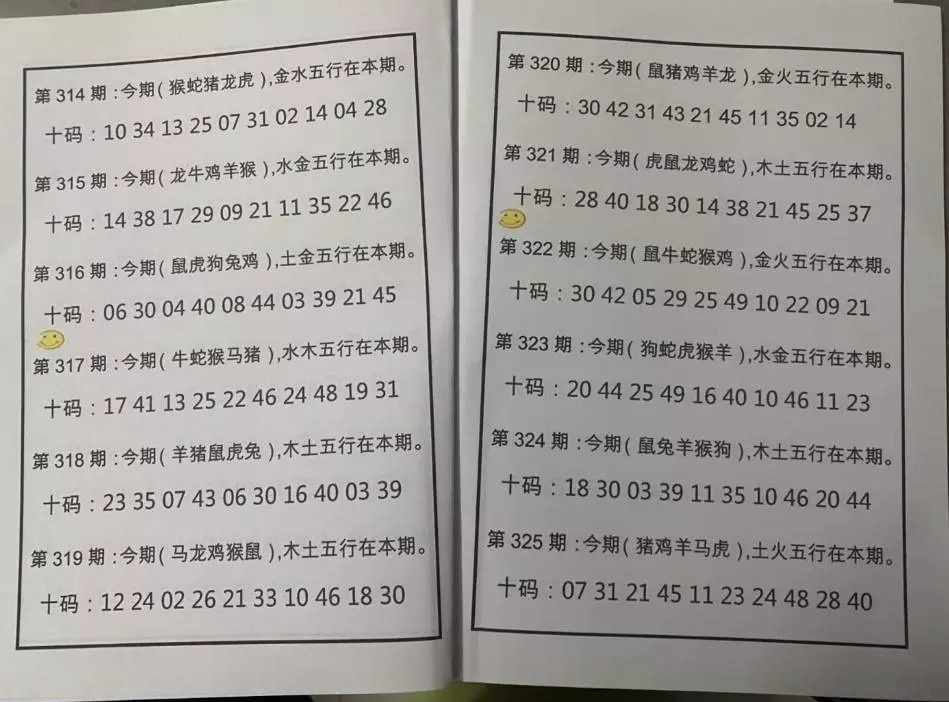 第 314 期 :今期( 猴蛇猪龙虎 ),金水五行在本期。
十码 : 10 34 13 25 07 31 02 14 04 28
第 315 期 :今期( 龙牛鸡羊猴 ),水金五行在本期。
十码 : 14 38 17 29 09 21 11 35 22 46
第 316 期 :今期( 鼠虎狗兔鸡 ),土金五行在本期。
十码 : 06 30 04 40 08 44 03 39 21 45
第 317 期 :今期( 牛蛇猴马猪 ),水木五行在本期。
十码 : 17 41 13 25 22 46 24 48 19 31
第 318 期 :今期( 羊猪鼠虎兔 ),木土五行在本期。
十码 : 23 35 07 43 06 30 16 40 03 39
第 319 期 :今期( 马龙鸡猴鼠 ),木土五行在本期。
十码 : 12 24 02 26 21 33 10 46 18 30
第 320 期 :今期( 鼠猪鸡羊龙 ),金火五行在本期。
十码 : 30 42 31 43 21 45 11 35 02 14
第 321 期 :今期( 虎鼠龙鸡蛇 ),木土五行在本期。
十码 : 28 40 18 30 14 38 21 45 25 37
第 322 期 :今期( 鼠牛蛇猴鸡 ),金火五行在本期。
十码 : 30 42 05 29 25 49 10 22 09 21
第 323 期 :今期( 狗蛇虎猴羊 ),水金五行在本期。
十码 : 20 44 25 49 16 40 10 46 11 23
第 324 期 :今期( 鼠兔羊猴狗 ),木土五行在本期。
十码 : 18 30 03 39 11 35 10 46 20 44
第 325 期 :今期( 猪鸡羊马虎 ),土火五行在本期。
十码 : 07 31 21 45 11 23 24 48 28 40